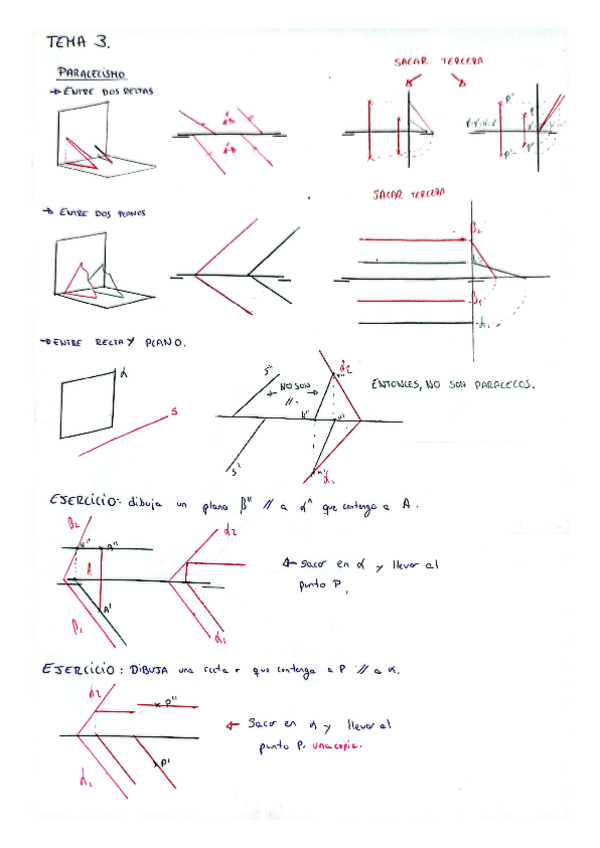 TEMA 3.
PARALELISMO
→ ENTRE DOS RECTAS
SACAR TERCERA
P''
P'
→ ENTRE DOS PLANOS
SACAR TERCERA
β2
β1
α1
→ ENTRE RECTA Y PLANO.
α
S
S''
NO SON
//.
S'
α2
V''
H''
V'
H'
α1
ENTONCES, NO SON PARALELOS.
EJERCICIO: dibuja un plano β'' // a α'' que contenga a A.
β2
V''
A''
A
A'
β1
α2
α1
← Sacar en α y llevar al
punto P.
EJERCICIO: DIBUJA una recta r que contenga a P // a α.
α2
P''
P'
α1
← Sacar en α y llevar al
punto P. una copia.